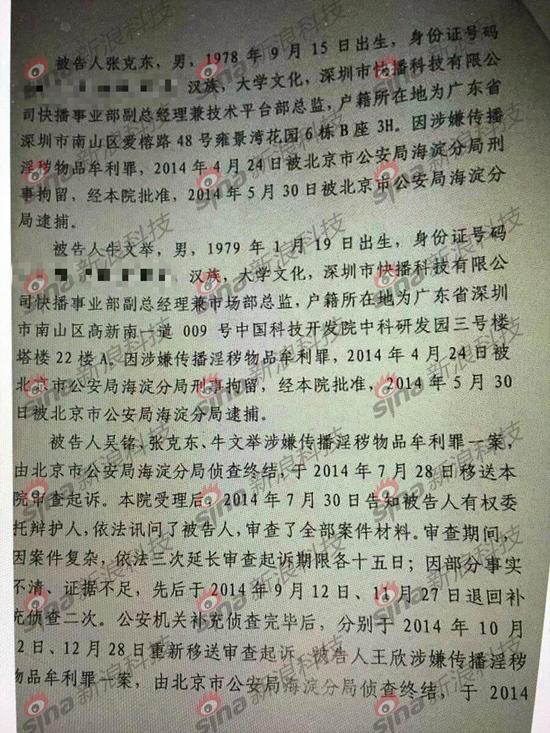 被告人张克东，男，1978 年 9 月 15 日出生，身份证号码
汉族，大学文化，深圳市快播科技有限公
司快播事业部副总经理兼技术平台部总监，户籍所在地为广东省
深圳市南山区爱榕路 48 号雍景湾花园 6 栋 B 座 3H。因涉嫌传播
淫秽物品牟利罪，2014 年 4 月 24 日被北京市公安局海淀分局刑
事拘留，经本院批准，2014 年 5 月 30 日被北京市公安局海淀分
局逮捕。
被告人牛文举，男，1979 年 1 月 19 日出生，身份证号码
汉族，大学文化，深圳市快播科技有限公
司快播事业部副总经理兼市场部总监，户籍所在地为广东省深圳
市南山区高新南一道 009 号中国科技开发院中科研发园三号楼
塔楼 22 楼 A。因涉嫌传播淫秽物品牟利罪，2014 年 4 月 24 日被
北京市公安局海淀分局刑事拘留，经本院批准，2014 年 5 月 30
日被北京市公安局海淀分局逮捕。
被告人吴铭、张克东、牛文举涉嫌传播淫秽物品牟利罪一案，
由北京市公安局海淀分局侦查终结，于 2014 年 7 月 28 日移送本
院审查起诉。本院受理后，2014 年 7 月 30 日告知被告人有权委
托辩护人，依法讯问了被告人，审查了全部案件材料。审查期间，
因案件复杂，依法三次延长审查起诉期限各十五日；因部分事实
不清、证据不足，先后于 2014 年 9 月 12 日、11 月 27 日退回补
充侦查二次。公安机关补充侦查完毕后，分别于 2014 年 10 月
2 日、12 月 28 日重新移送审查起诉。被告人王欣涉嫌传播淫秽
物品牟利罪一案，由北京市公安局海淀分局侦查终结，于 2014
sina 新浪科技